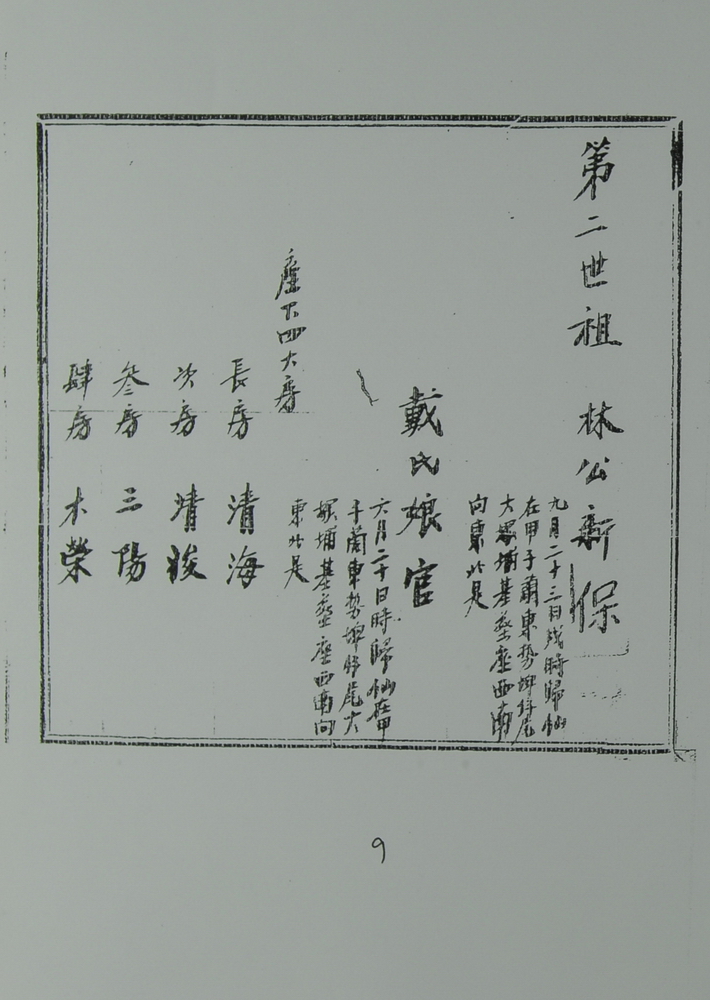 第二世祖 林公新保
九月二十三日戌時歸仙
在甲子蘭東勢埤仔尾
大塚埔基塟座西南
向東北是
戴氏娘官
六月二十日時歸仙在甲
子蘭東勢埤仔尾大
塚埔基塟座西南向
東北是
座下四大房
長房 清海
次房 清俊
叁房 三陽
肆房 木榮
9